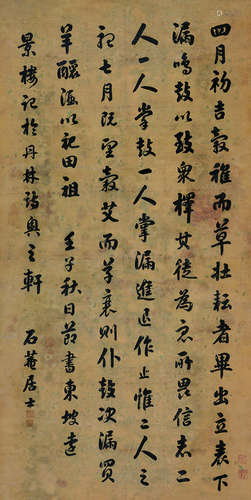 四月初吉穀稚而草壯耘者畢出立表下
漏鳴鼓以致衆擇其徒為衆所畏信者二
人一人掌鼓一人掌漏進退作止惟二人之
聽七月既望穀艾而草衰則仆鼓決漏買
羊釃酒以祀田祖 壬子秋日節書東坡遠
景樓記於丹林詩輿之軒 石菴居士